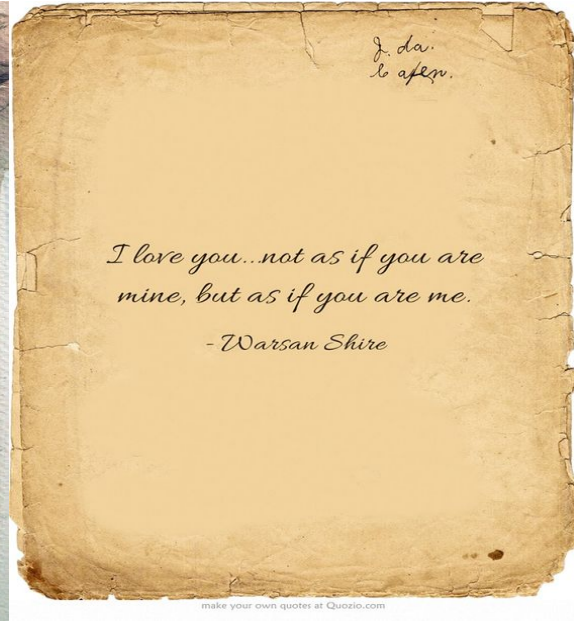 I love you...not as if you are
mine, but as if you are me.
- Warsan Shire
make your own quotes at Quozio.com